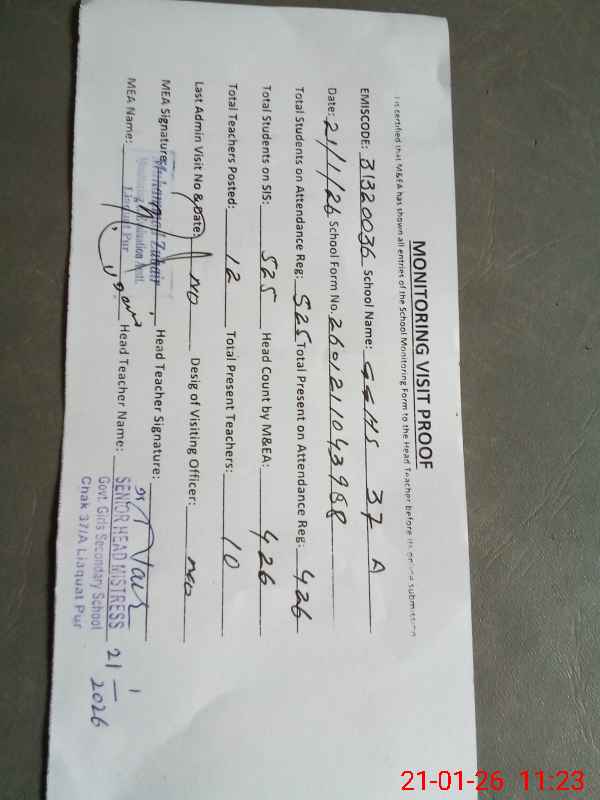 MONITORING VISIT PROOF
It is certified that M&EA has shown all entries of the School Monitoring Form to the Head Teacher before its online submission
EMISCODE: 31320036 School Name: GGHS 37 A
Date: 21/1/26 School Form No. 260121104398 8
Total Students on Attendance Reg: 525 Total Present on Attendance Reg: 426
Total Students on SIS: 525 Head Count by M&EA: 426
Total Teachers Posted: 12 Total Present Teachers: 10
Last Admin Visit No & Date: NO Desig of Visiting Officer: NO
MEA Signature: Muhammad Zubair Head Teacher Signature:
Monitoring & Evaluation Asstt.
Liaquat Pur
MEA Name: Head Teacher Name:
SENIOR HEAD MISTRESS
Govt. Girls Secondary School
Chak 37/A Liaquat Pur
21/1/2026
21-01-26 11:23